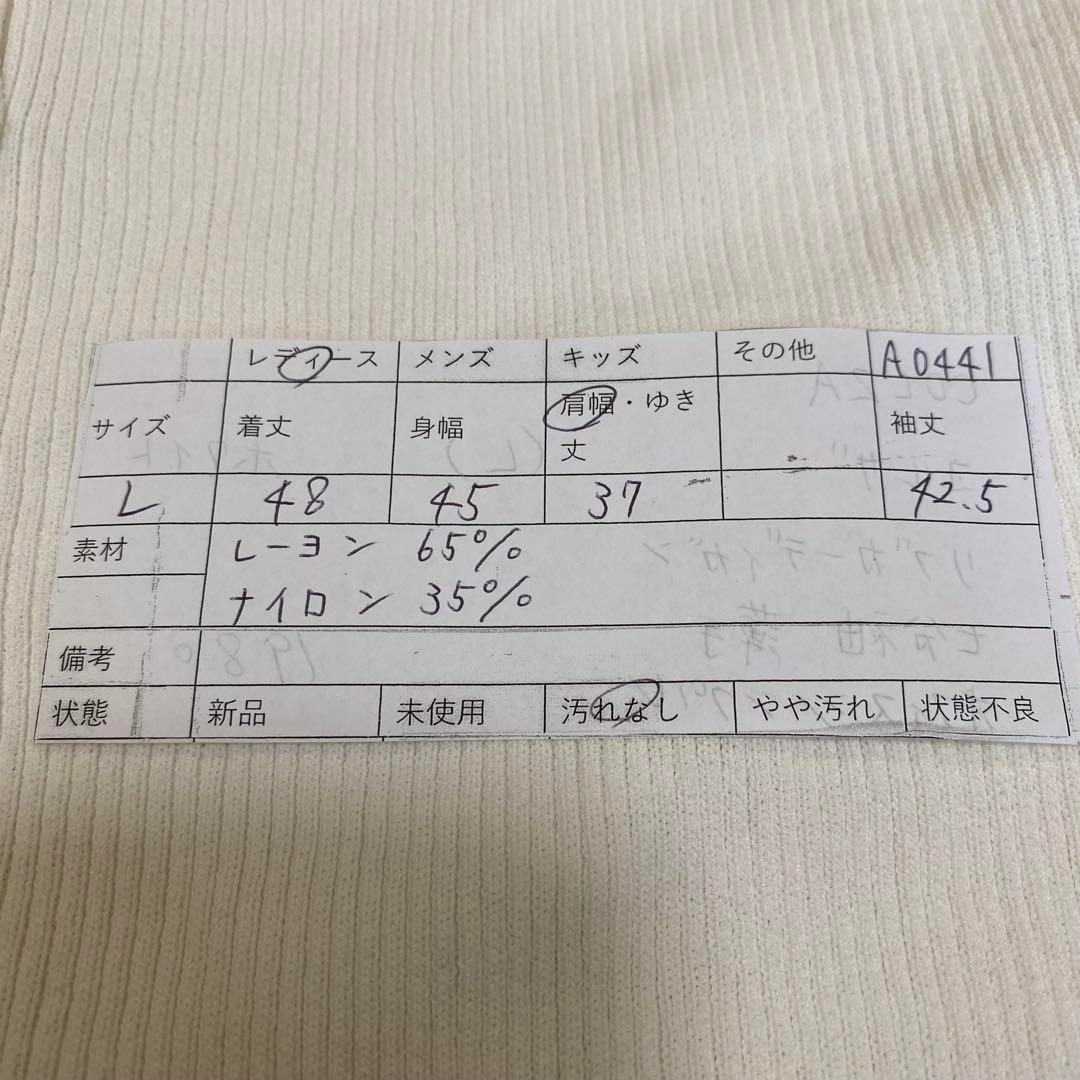 レディース メンズ キッズ その他 A0441
サイズ 着丈 身幅 肩幅・ゆき丈 袖丈
L 48 45 37 42.5
素材 レーヨン 65%
ナイロン 35%
備考
状態 新品 未使用 汚れなし やや汚れ 状態不良